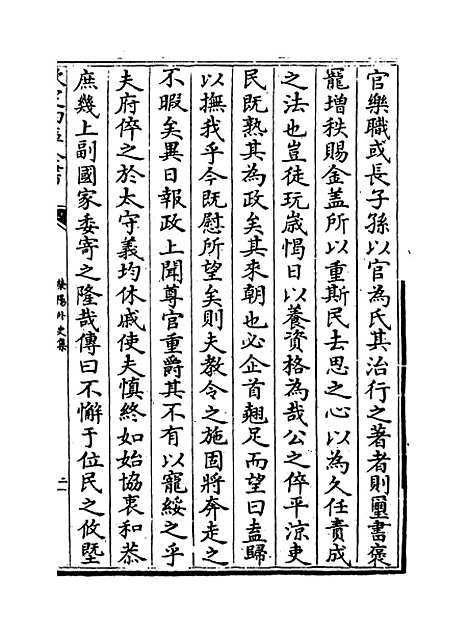 官樂職或長子孫以官為氏其治行之著者則璽書褒
寵増秩賜金盖所以重斯民去思之心以為久任責成
之法也豈徒玩歳愒日以養資格為哉公之倅平凉吏
民既熟其為政矣其來朝也必企首翹足而望曰盍歸
以撫我乎今既慰所望矣則夫教令之施固將奔走之
不暇矣異日報政上聞尊官重爵其不有以寵綏之乎
夫府倅之於太守義均休戚使夫慎終如始協衷和恭
庶幾上副國家委寄之隆哉傳曰不懈于位民之攸墍
滎陽外史集
二